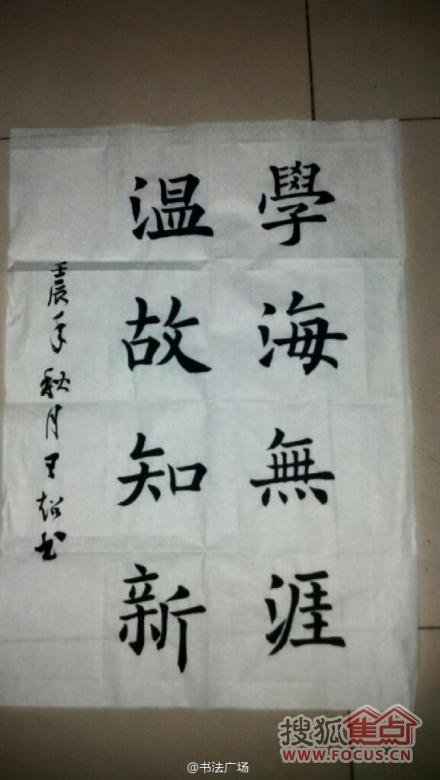 學海無涯
温故知新
壬辰年秋月王超书
搜狐焦点
WWW.FOCUS.CN
@书法广场